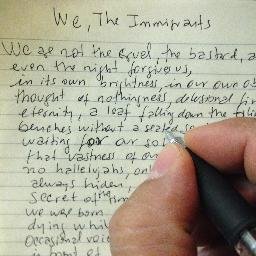 We, The Immigrants
We are not the cruel, the bastard, a
even the night forgives us,
in its own brightness, in our own
thought of nothingness, delusional
eternity, a leaf falling down the
benches without a
waiting for our
that vastness of our
no hallelujahs,
always hidden,
secret of the
we were born
dying while
occasional